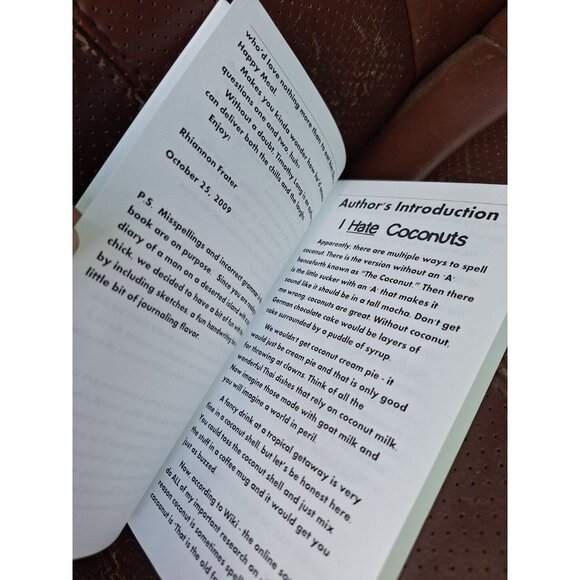 who'd love nothing more than to eat
Happy Meal.
Makes you kinda wonder how he'd
questions one and two, huh?
Without a doubt, Timothy Long is an
can deliver both the chills and the laughs.
Enjoy!
Rhiannon Frater
October 25, 2009
P.S. Misspellings and incorrect grammar
book are on purpose. Since you are
diary of a man on a deserted island with
chick, we decided to have a bit of fun with
by including sketches, a fun handwriting
little bit of journaling flavor.
Author's Introduction
I Hate Coconuts
Apparently there are multiple ways to spell
coconut. There is the version without an 'A'
henceforth known as "The Coconut." Then there
is the little sucker with an 'A' that makes it
sound like it should be in a tall mocha. Don't get
me wrong, coconuts are great. Without coconut,
German chocolate cake would be layers of
cake surrounded by a puddle of syrup.
We wouldn't get coconut cream pie - it
would just be cream pie and that is only good
for throwing at clowns. Think of all the
wonderful Thai dishes that rely on coconut milk.
Now imagine those made with goat milk and
you will imagine a world in peril.
A fancy drink at a tropical getaway is very
fine in a coconut shell, but let's be honest here.
You could toss the coconut shell and just mix
the stuff in a coffee mug and it would get you
just as buzzed.
Now according to Wiki - the online
do ALL of my important research on -
reason coconut is sometimes spelled
cocoanut is 'That is the old